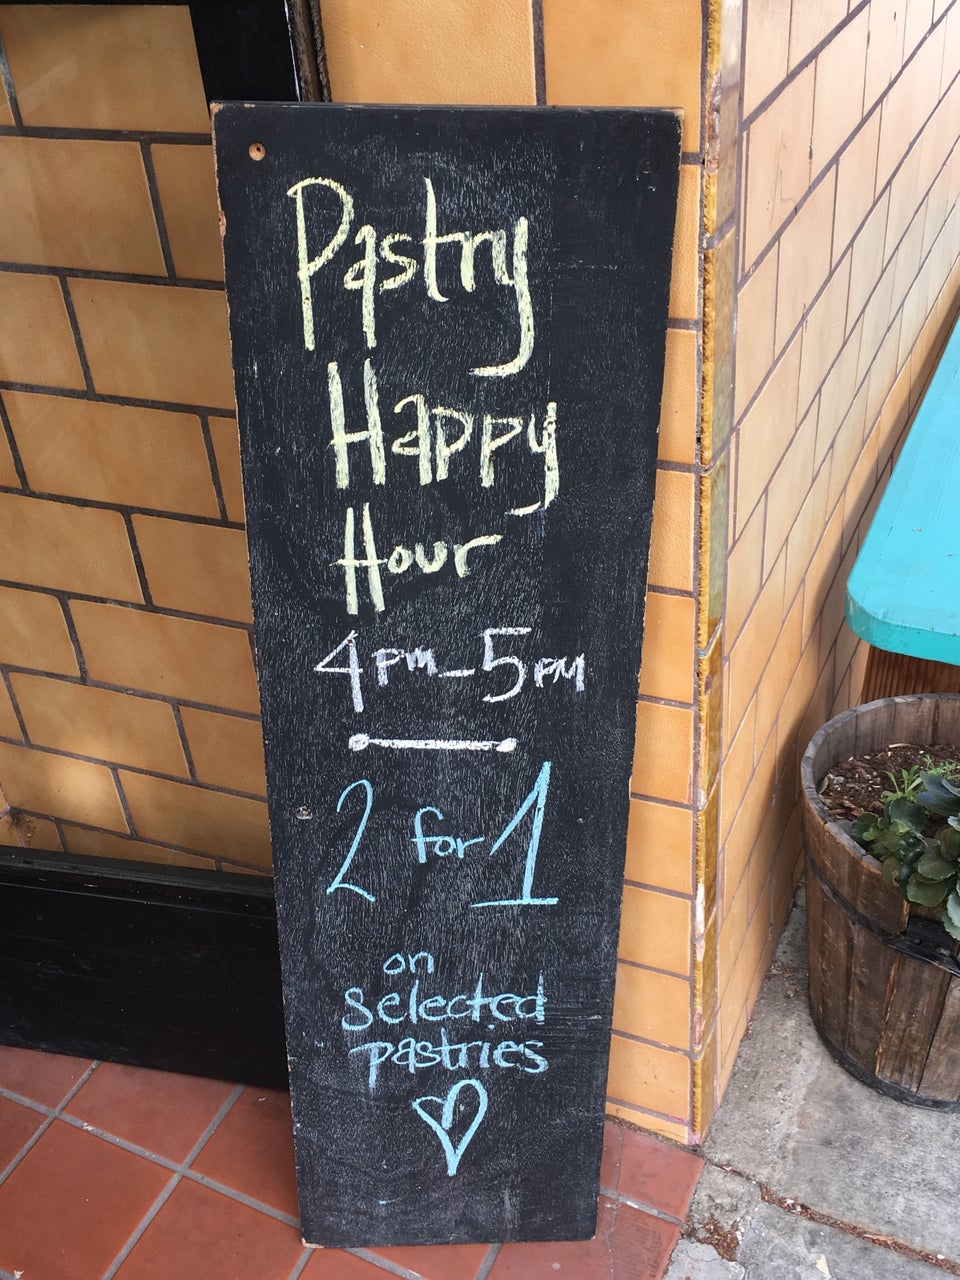 Pastry
Happy
Hour
4pm-5pm
2 for 1
on
selected
pastries